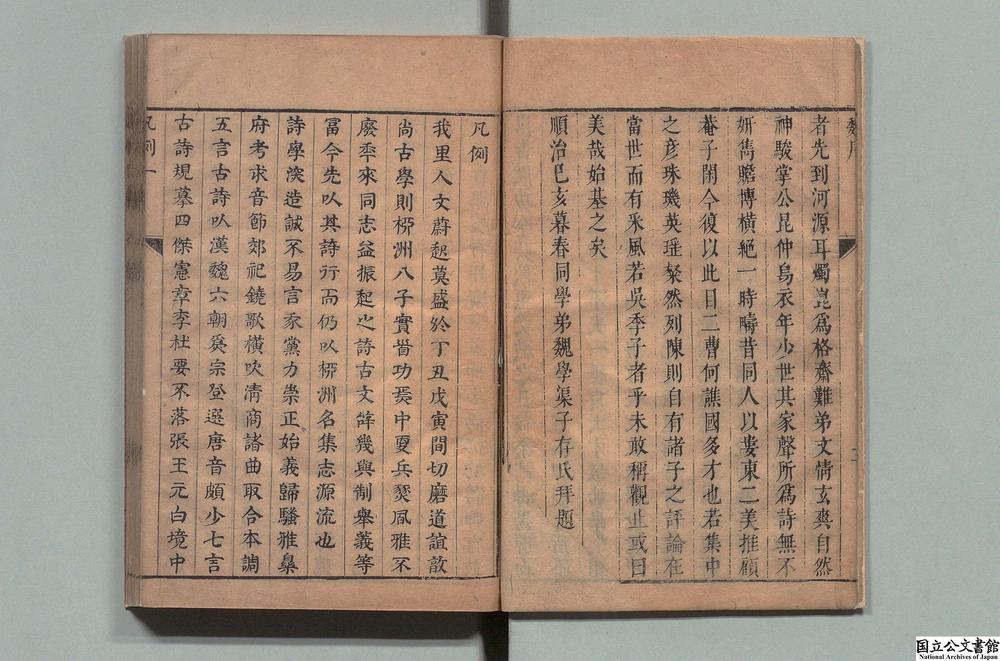 魏序
者先到河源耳燭崑爲格齋難弟文情玄爽自然
神駿掌公昆仲烏衣年少世其家聲所爲詩無不
妍雋贍博橫絕一時疇昔同人以婁東二美推顧
菴子閒今復以此目二曹何譙國多才也若集中
之彥珠璣英瑤粲然列陳則自有諸子之評論在
當世而有采風若吳季子者乎未敢稱觀止或曰
美哉始基之矣
順治己亥暮春同學弟魏學渠子存氏拜題
凡例
我里人文蔚起莫盛於丁丑戊寅間切磨道誼敦
尙古學則栁洲八子實啻功焉中夏兵燹風雅不
廢秊來同志益振起之詩古文辝幾與制舉義等
富今先以其詩行而仍以栁洲名集志源流也
詩學深造誠不易言家黨力崇正始義歸騷雅樂
府考求音節郊祀鐃歌橫吹淸商諸曲取合本調
五言古詩以漢魏六朝爲宗登選唐音頗少七言
古詩規摹四傑憲章李杜要不落張王元白境中
凡例 一
国立公文書館
National Archives of Japan